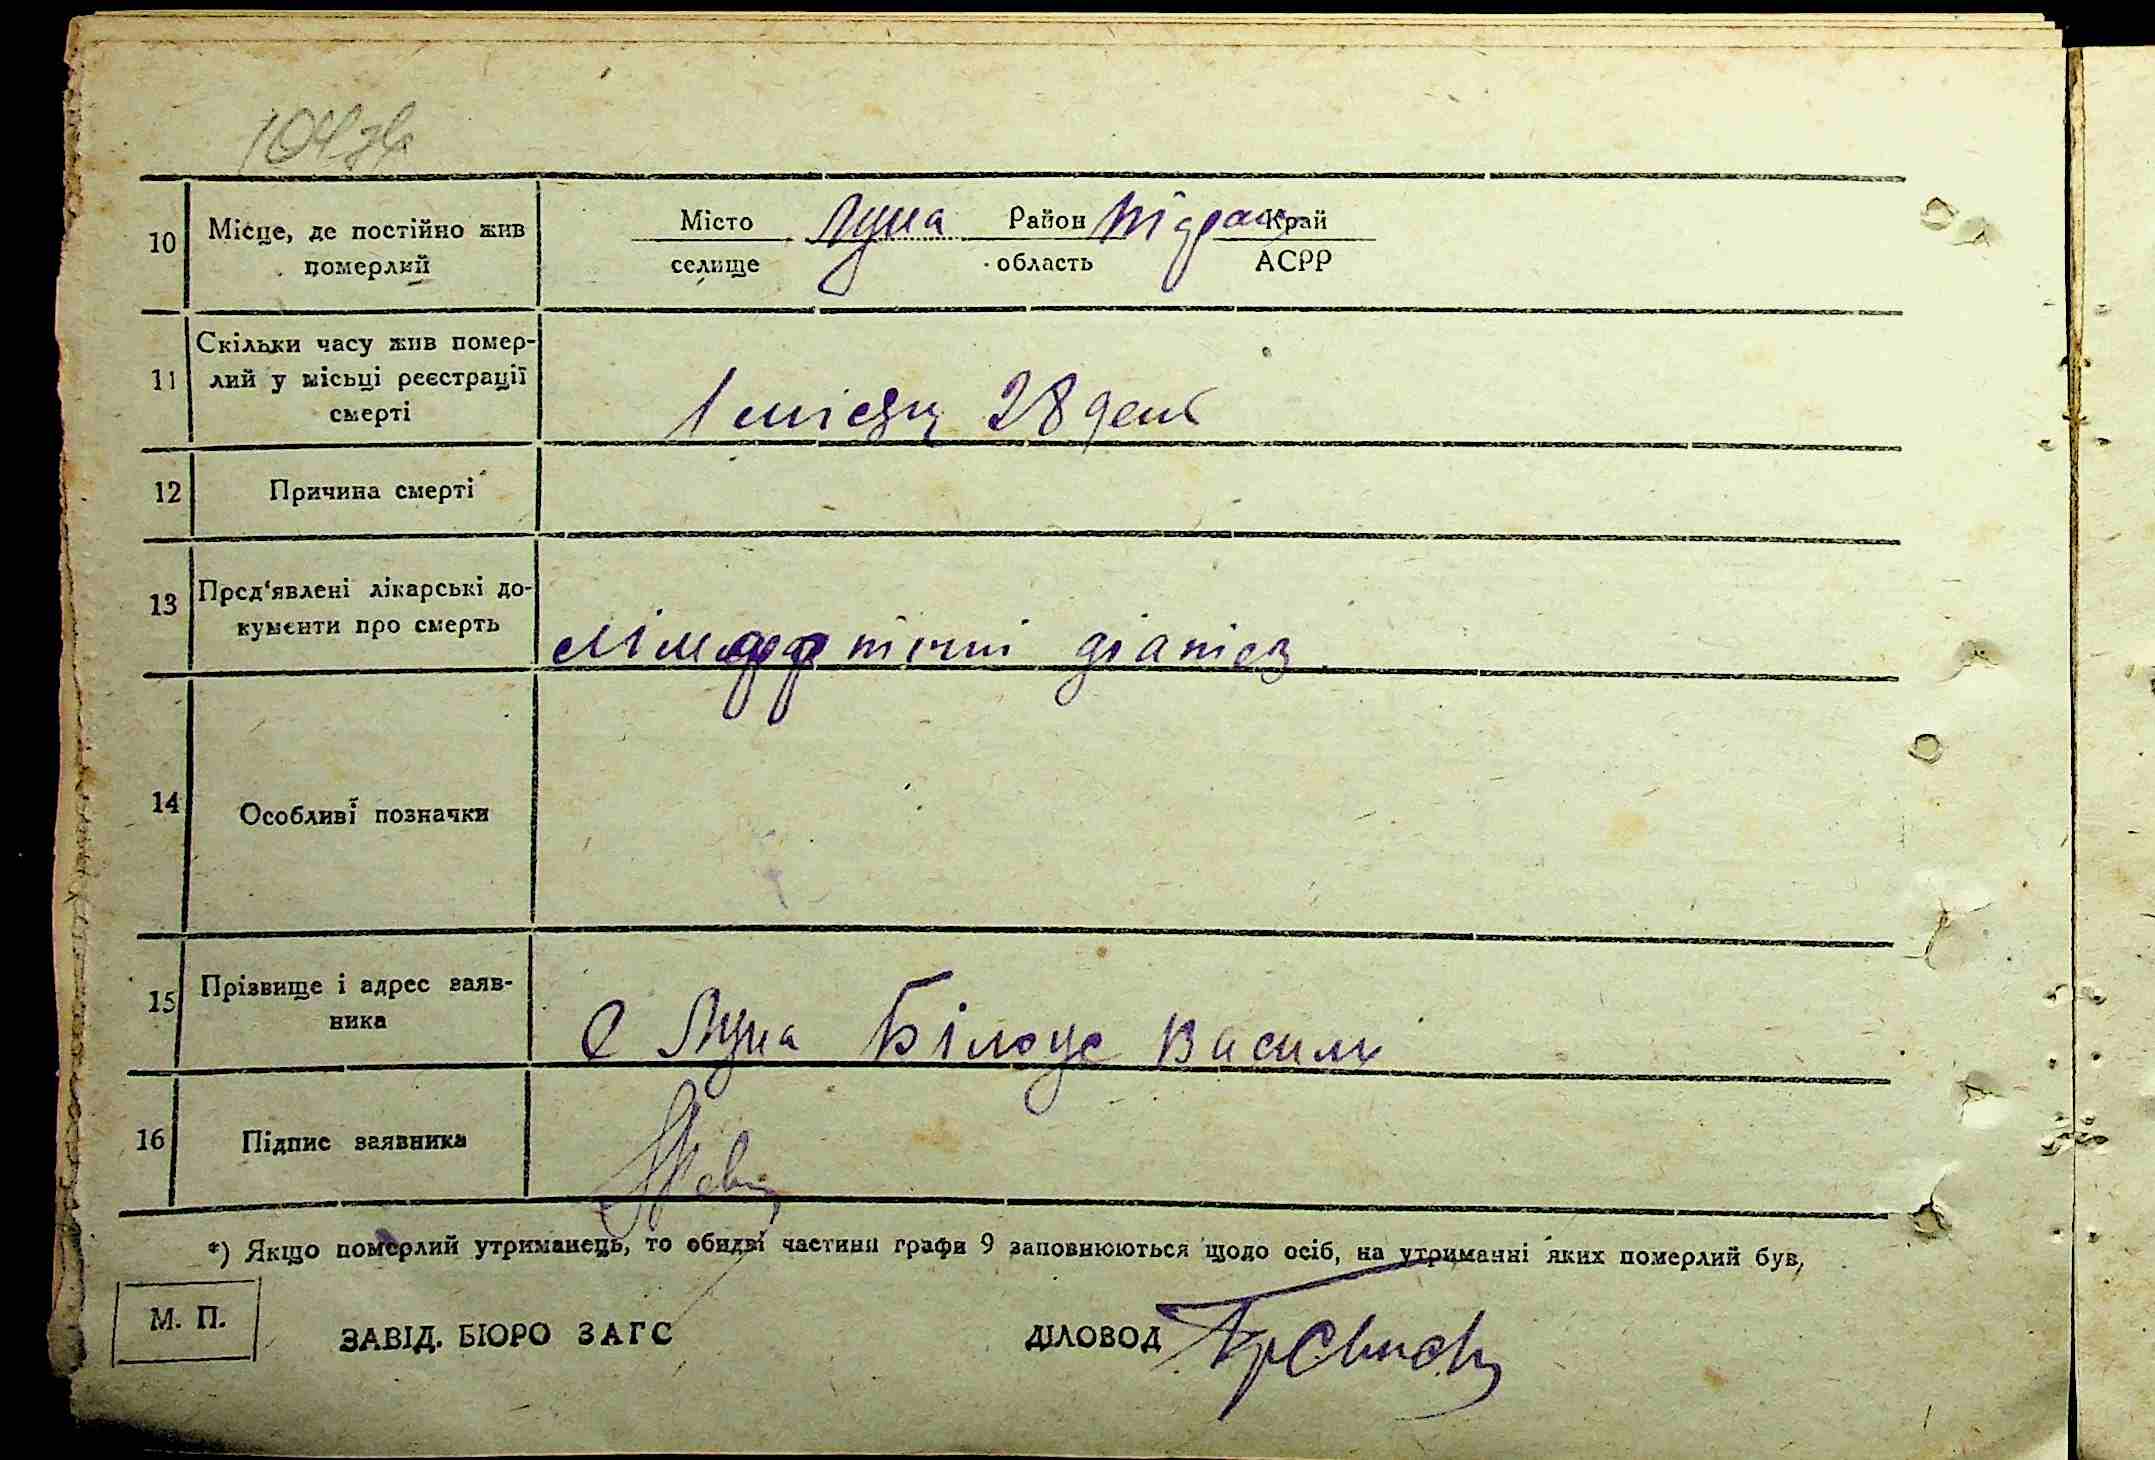 104зв
10 Місце, де постійно жив померлий
Місто селище Лука Район область Підгаєць Край АСРР
11 Скільки часу жив помер-
лий у місьці реєстрації
смерті
1 місяц 28 день
12 Причина смерті
13 Пред'явлені лікарські до-
кументи про смерть
лімфатічні діатез
14 Особливі позначки
15 Прізвище і адрес заяв-
ника
С Лука Білоус Васили
16 Підпис заявника
*) Якщо померлий утриманець, то обидві частини графи 9 заповнюються щодо осіб, на утриманні яких померлий був,
М. П.
ЗАВІД. БЮРО ЗАГС
ДІЛОВОД